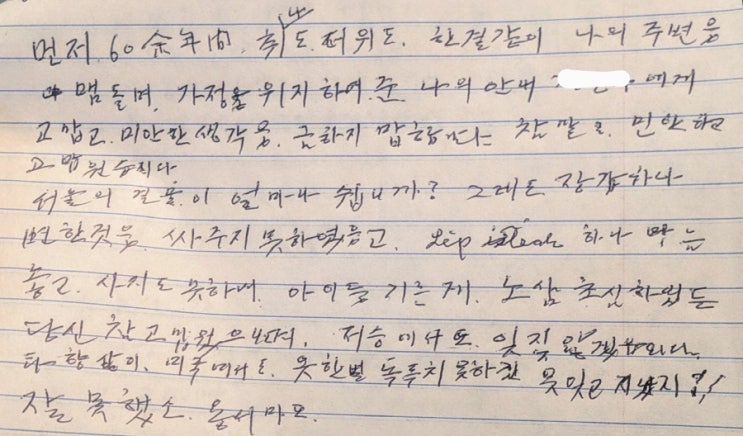 먼저. 60余年間. 추도. 더위도. 한결같이 나의 주변을
맴돌며, 가정을 위지하여 준 나의 안내 에게
고맙고. 미안한 생각을. 금하지 맙합니다 참말로. 미안하고
고맙원습니다
서울의 겨울이 얼마나 쉽니까? 그레도 장갑하나
변한것을. 싸주지 못하엿듬고. Lip stick 하나 마음
놓고. 사지도 못하며. 아이들 기른제. 노심 초심하였든
당신 참고맙웠으며, 저승에서도. 잊지 않겠습니다.
타향살이. 미국에서도. 옷한벌 독투치 못하고 못잊고 지냈지요!
잘못했소. 용서마오.